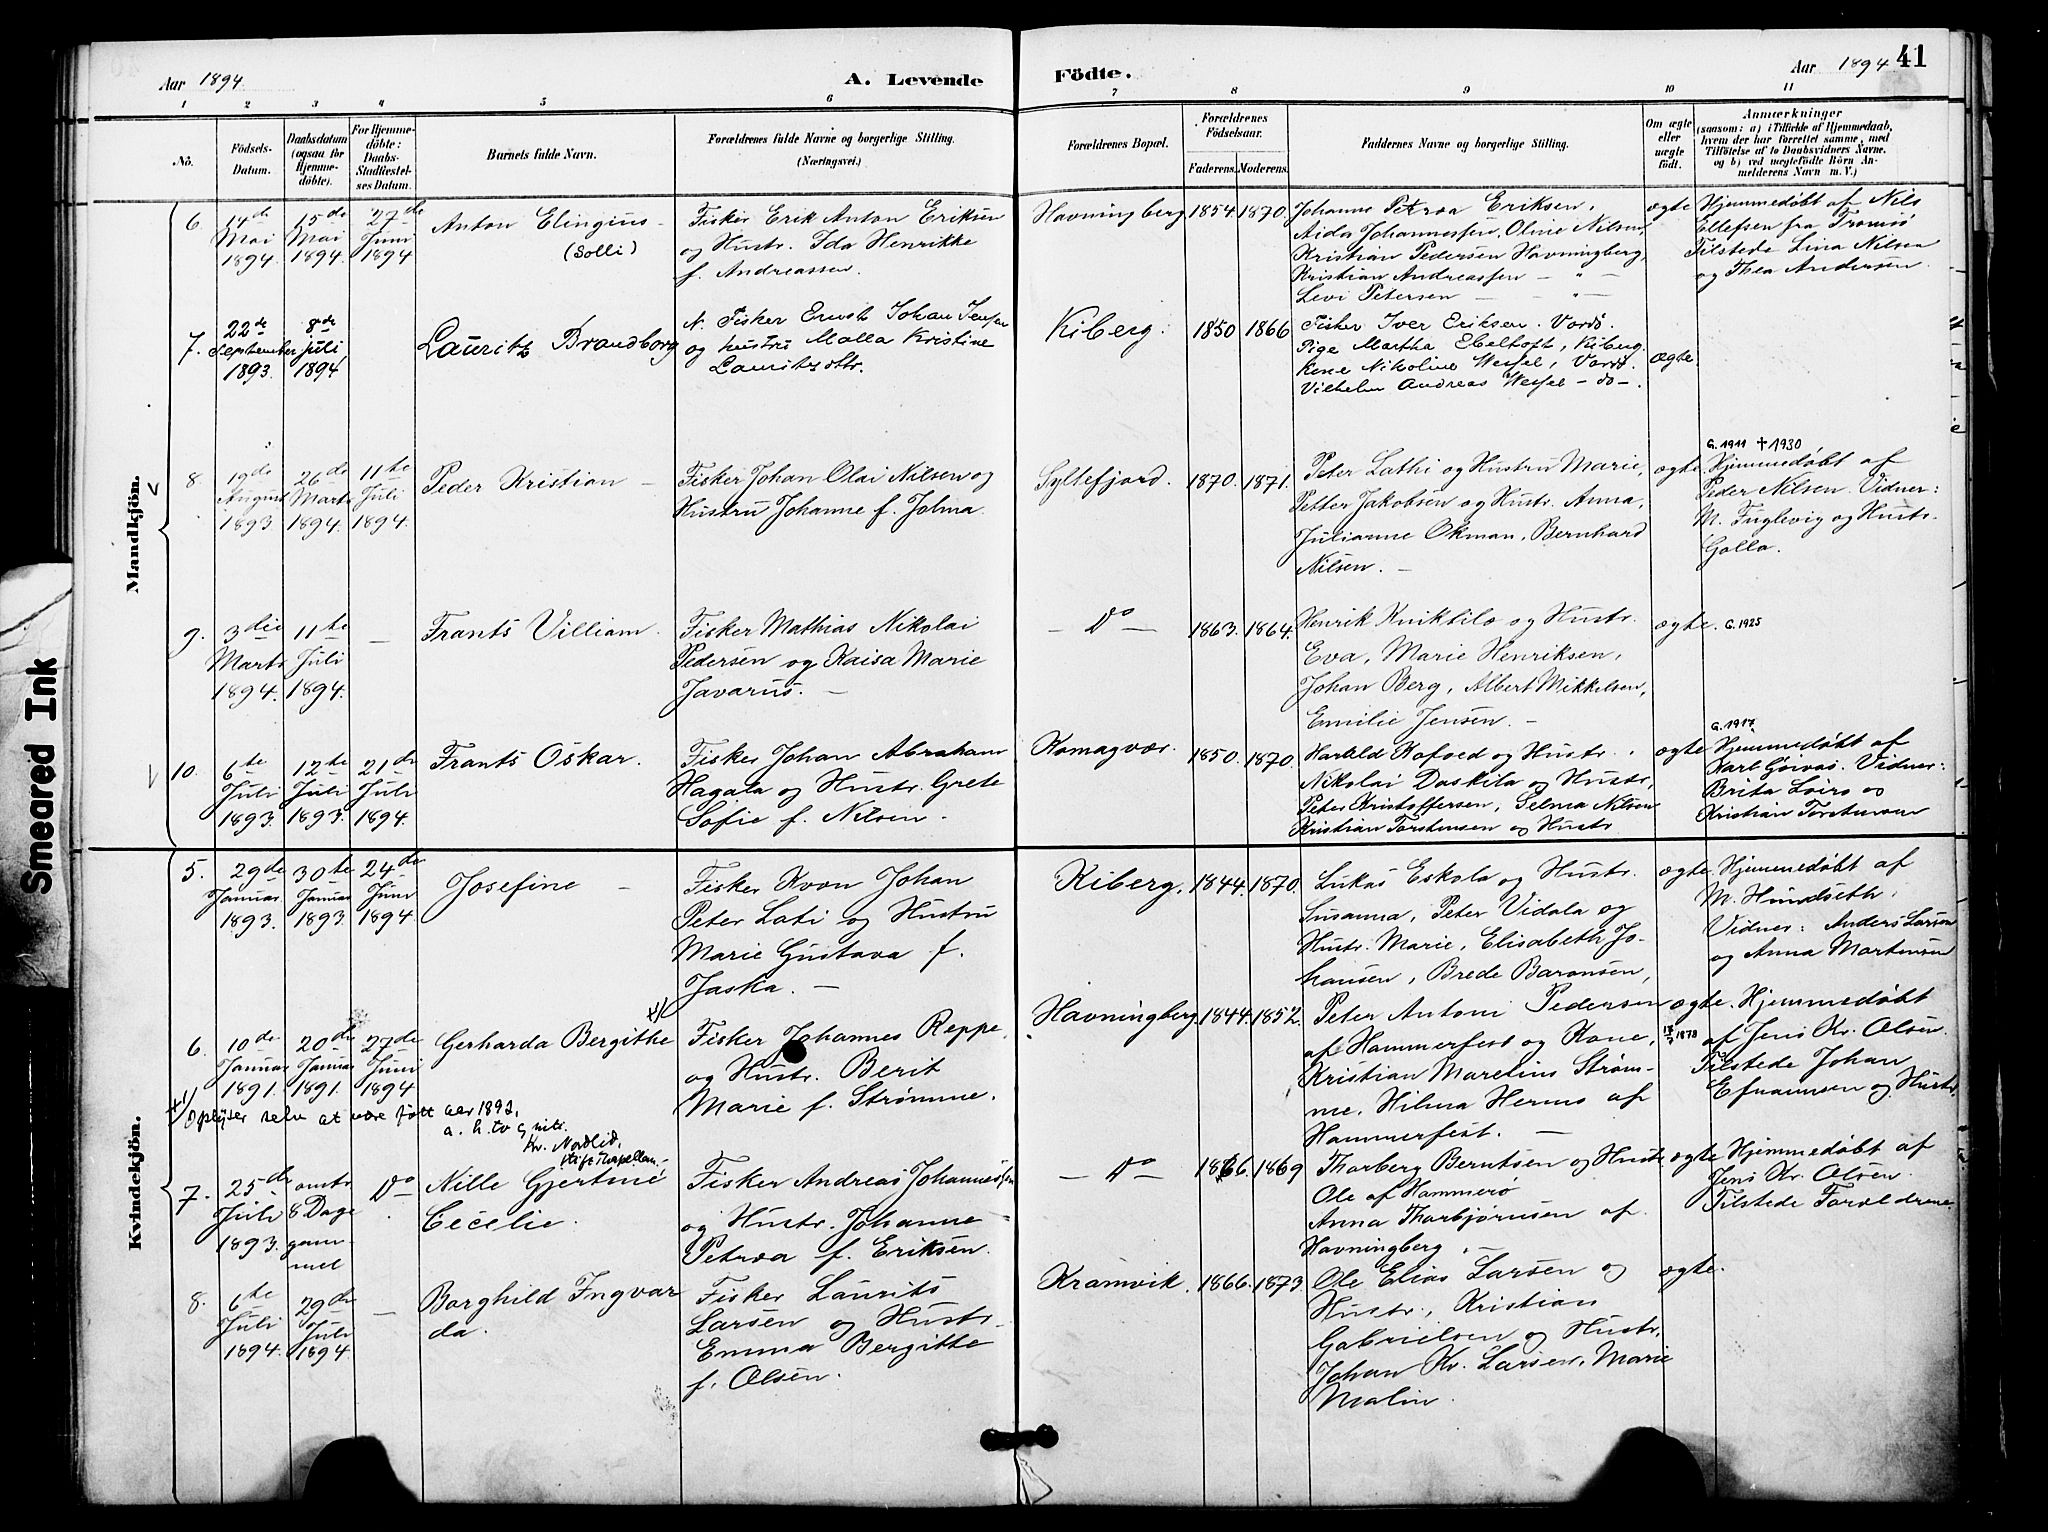 Aar 1894.
A. Levende Födte.
Aar 1894
41
1 2 3 4 5 6 7 8 9 10 11
No.
Födsels-
Datum.
Daabsdatum
(ogsaa for
Hjemme-
döbte).
For Hjemme-
döbte:
Daabs-
Stadfæstel-
ses Datum.
Barnets fulde Navn.
Forældrenes fulde Navne og borgerlige Stilling.
(Næringsvei.)
Forældrenes Bopæl.
Forældrenes
Födselsaar.
Faderens. Moderens.
Faddernes Navne og borgerlige Stilling.
Om ægte
eller
uægte
født.
Anmærkninger
(saasom: a) i Tilfælde af Hjemmedaab,
hvem der har forrettet samme, med
Tilföielse af to Daabsvidners Navne,
og b) ved uægtefödte Börn An-
melderens Navn m. V.)
Mandkjön.
6.
14de
Mai
1894.
15de
Mai
1894.
27de
Juni
1894
Anton Elingius
(Solli)
Fisker Erik Anton Eriksen
og Hustr. Ida Henrikke
f. Andreassen.
Havningberg
1854. 1870.
Johanne Petrea Eriksen,
Aida Johannessen, Oline Nilsen,
Kristian Pedersen Havningberg,
Kristian Andreassen — " —
Levi Petersen — " —
ægte
Hjemmedøbt af Nils
Ellefsen fra Tromsø
Tilstede Lina Nilsen
og Thea Andersen.
7.
22de
September
1893.
8de
juli
1894
Lauritz Brandborg
N. Fisker Ernst Johan Jensen
og hustru Malla Kristine
Lauritzdttr.
Kiberg.
1850 1866
Fisker Iver Eriksen. Vardø.
Pige Martha Ebeltoft, Kiberg.
Kone Nikoline Wessel, Vardø.
Vilhelm Andreas Wessel — do —.
ægte.
8
19de
August
1893.
26de
Marts
1894.
11te
Juli
1894.
Peder Kristian —
Fisker Johan Olai Nilsen og
Hustru Johanne f. Jolma.
Syltefjord.
1870. 1871.
Peter Lathi og Hustru Marie,
Petter Jakobsen og Hustr. Anna,
Julianne Okman, Bernhard
Nilsen. —
ægte
G. 1911 † 1930
Hjemmedøbt af
Peder Nilsen. Vidner:
M. Fuglevig og Hustr.
Golla.
9.
3die
Marts
1894.
11te
Juli
1894.
—
Frants Villiam.
Fisker Mathias Nikolai
Pedersen og Kaisa Marie
Javarus. —
— Do —
1863. 1864.
Henrik Kniktilo og Hustr.
Eva, Marie Henriksen,
Johan Berg, Albert Mikkelsen,
Emilie Jensen. —
ægte. G. 1925
10.
6te
Juli
1893.
12te
Juli
1893.
21de
Juli
1894.
Frants Oskar.
Fisker Johan Abraham
Hagala og Hustr. Grete
Sofie f. Nilsen.
Komagvær.
1850. 1870
Hartild Kofoed og Hustr.
Nikolai Daskila og Hustr,
Peter Kristoffersen, Selma Nilsen
Kristian Torstensen og Hustr
ægte
G. 1917
Hjemmedøbt af
Karl Göivas. Vidner:
Brita og
Kristian Torstensen
Kvindekjön.
5.
29de
Januar
1893.
30te
Januar
1893.
24de
Juni
1894
Josefine —
Fisker Kvæn Johan
Peter Lati og Hustru
Marie Gustava f.
Jaska. —
Kiberg.
1844. 1870.
Lukas Eskola og Hustr.
Susanna, Peter Vidala og
Hustr. Marie, Elisabeth Jo-
hansen, Brede Baronsen,
ægte.
Hjemmedøbt af
M. Hundseth.
Vidner: Anders Larsen
og Anna Martensen
6.
10de
Januar
1891.
20de
Januar
1891.
27de
Juni
1894
Gerharda Bergithe x)
Fisker Johannes Reppe,
og Hustr. Berit
Marie f. Strømme.
Havningberg
1844. 1852.
Peter Antoni Pedersen
af Hammerfest og Kone,
Kristian Marelius Strøm-
me, Hilma Herms af
Hammerfest. —
ægte.
1878
Hjemmedøbt
af Jens Kr. Olsen.
Tilstede Johan
og Hustr.
x) Oplyser selv at være født aar 1892.
Kr. Nordlid,
Stiftskapellan.
7.
25de
Juli
1893.
omtr
8 Dage
gam-
mel
Do
Nille Gjertine
Cecelie.
Fisker Andreas Johannessen
og Hustr. Johanne
Petrea f. Eriksen.
— Do —
1866. 1869
Thorberg Berntsen og Hustr
Ole af Hammerø
Anna Thorbjørnsen af
Havningberg.
ægte
Hjemmedøbt af
Jens Kr. Olsen.
Tilstede Forældrene.
8.
6te
Juli
1894.
29de
Juli
1894.
—
Borghild Ingvar
da.
Fisker Laurits
Larsen og Hustr.
Emma Bergitte
f. Olsen.
Kramvik.
1866. 1873.
Ole Elias Larsen og
Hustr., Kristian
Gabrielsen og Hustr,
Johan Kr. Larsen, Marie
Malin.
ægte.
Smeared Ink